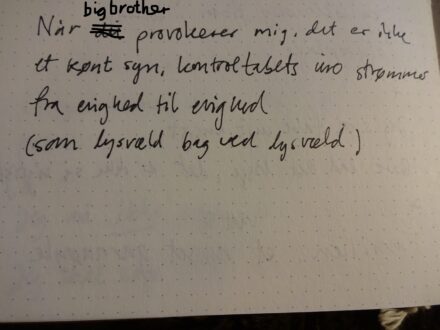 bigbrother
Når provokerer mig, det er ikke
et kønt syn, kontroltabets uro strømmer
fra evighed til evighed
(som lysvæld bag ved lysvæld)